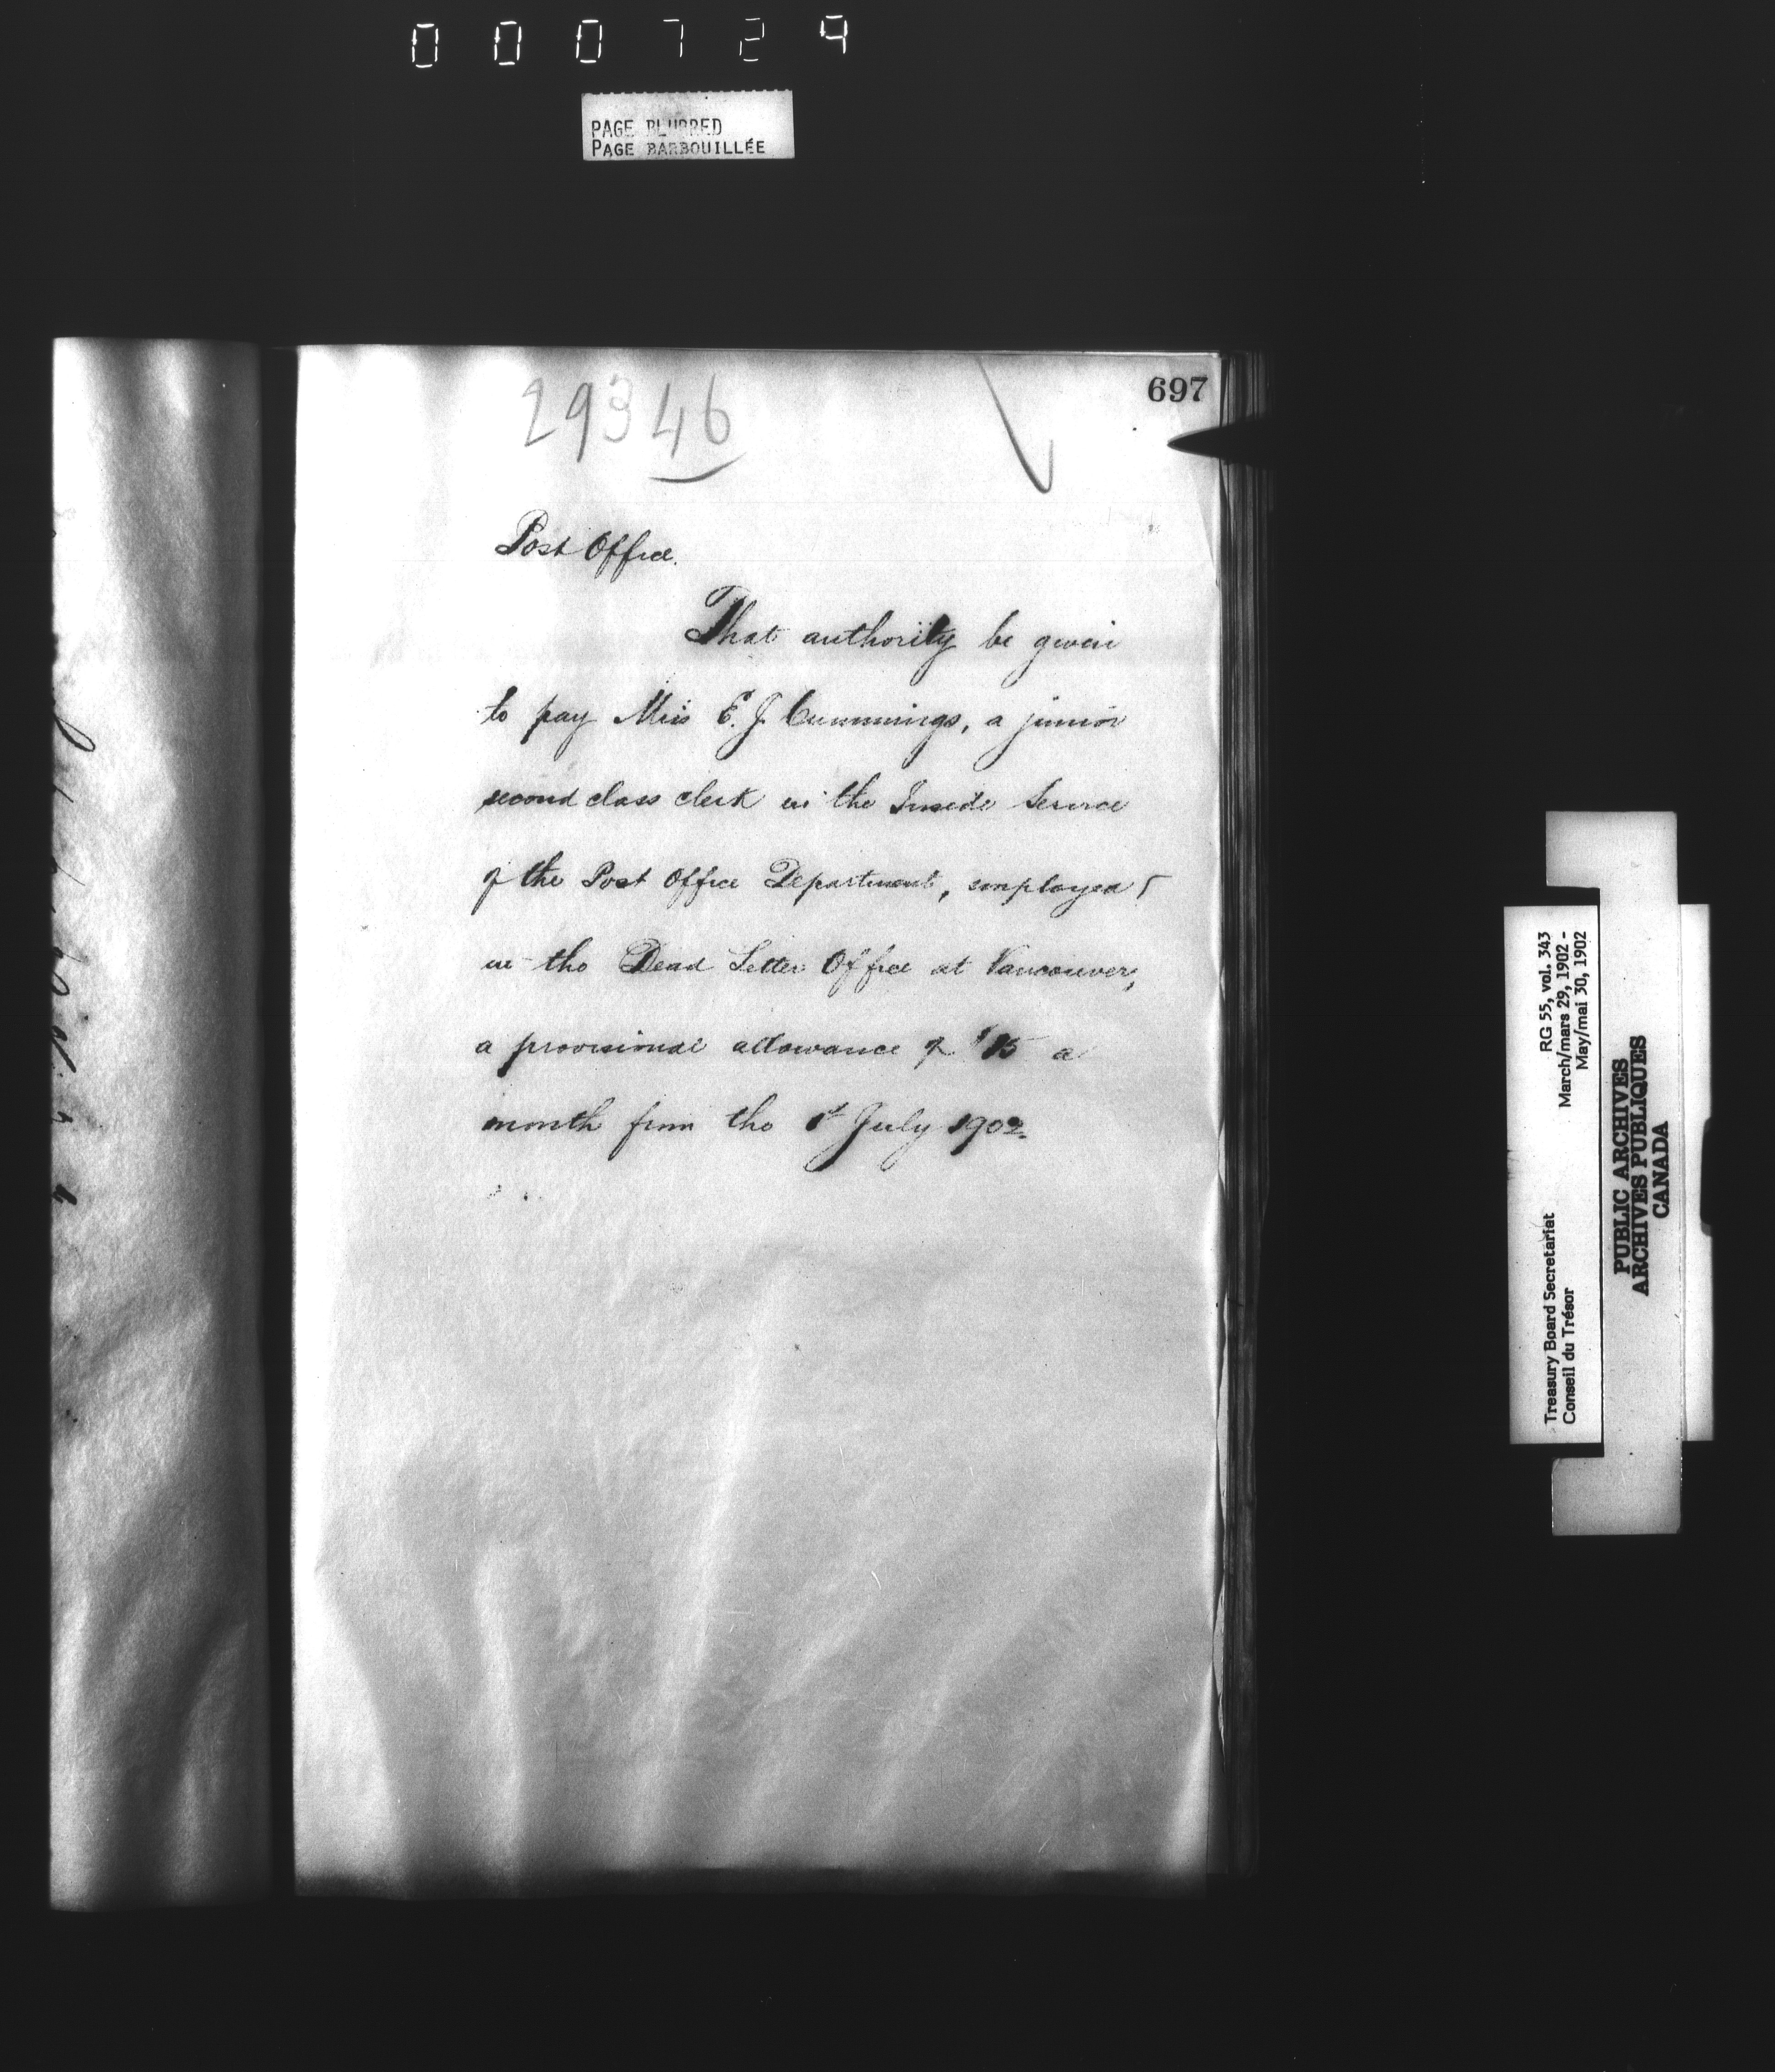 000724
PAGE BLURRED
PAGE BARBOUILLÉE
697
29346
Post Office.
That authority be given
to pay Miss E. J. Cummings, a junior
second class clerk in the Inside Service
of the Post Office Department, employed
in the Dead Letter Office at Vancouver,
a provisional allowance of $15 a
month from the 1st July 1902.
RG 55, vol. 343
March/mars 29, 1902 -
May/mai 30, 1902
Treasury Board Secretariat
Conseil du Trésor
PUBLIC ARCHIVES
ARCHIVES PUBLIQUES
CANADA